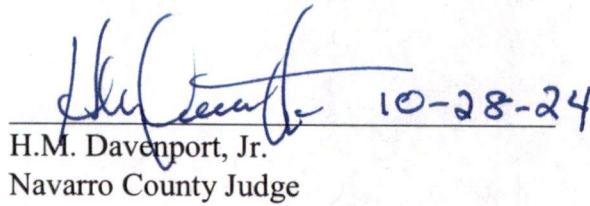 10-28-24
H.M. Davenport, Jr.
Navarro County Judge